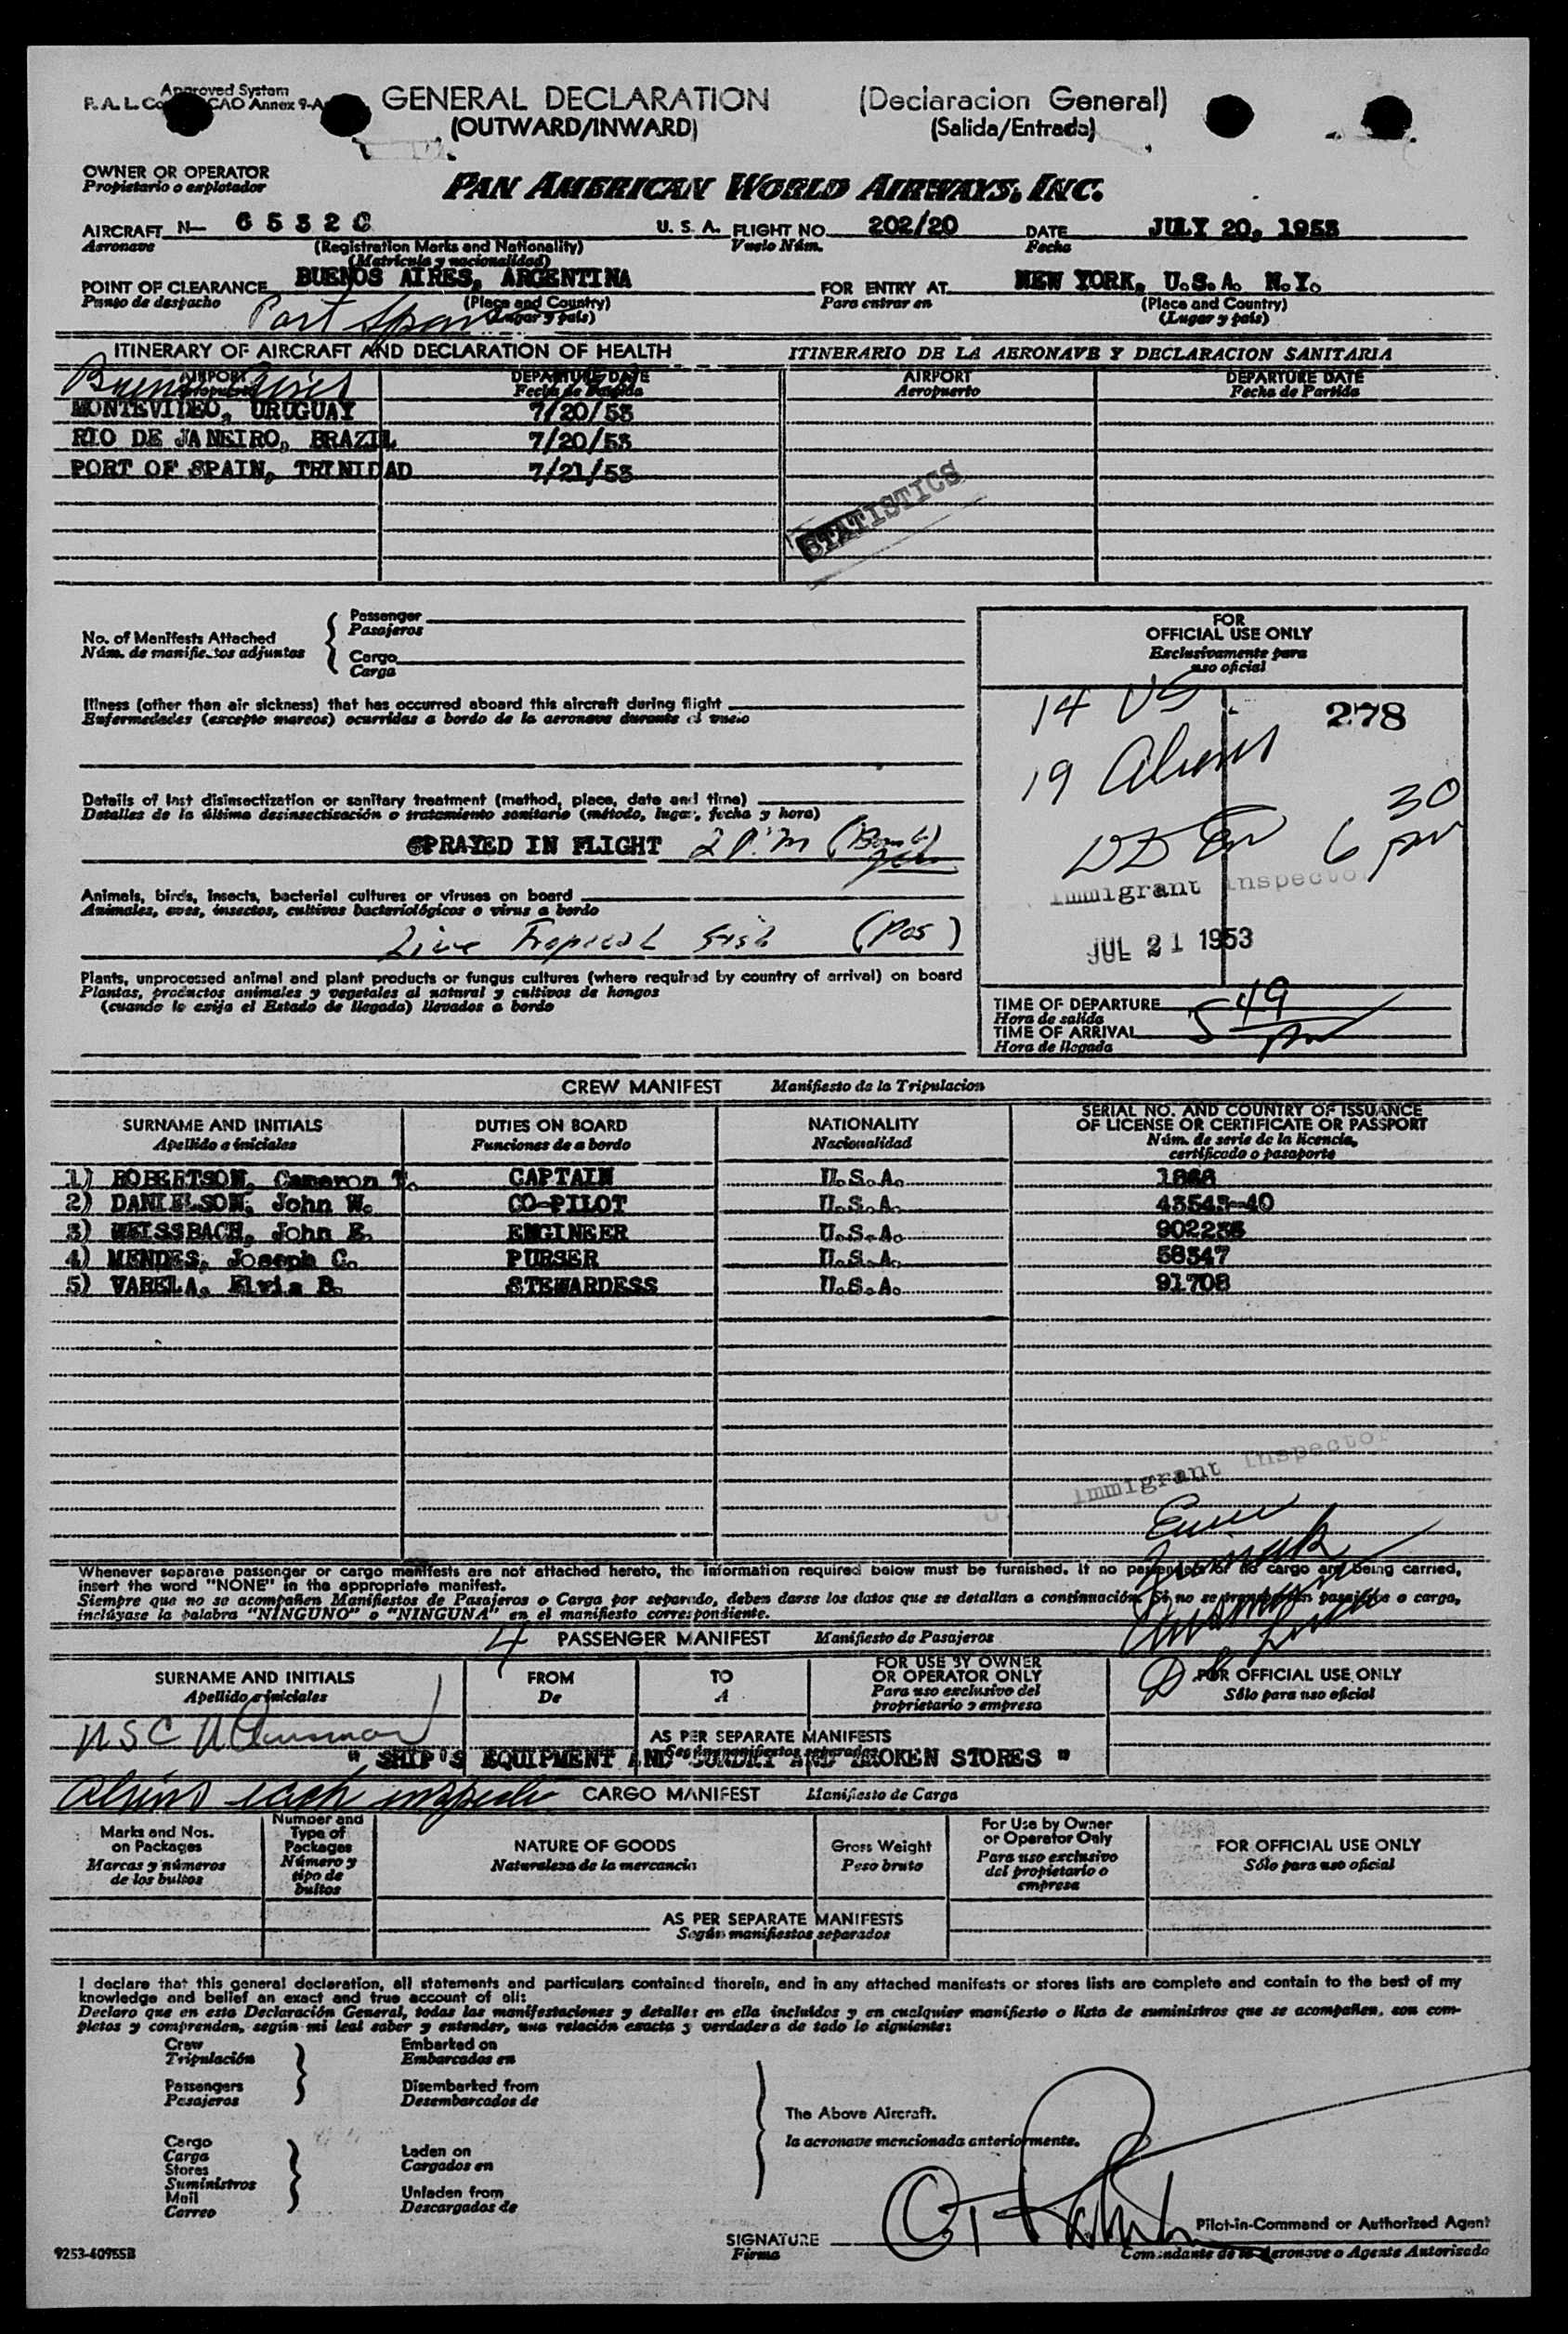 Approved System
F. A. L. Co CAO Annex 9-A
GENERAL DECLARATION (Declaracion General)
(OUTWARD/INWARD) (Salida/Entrada)
OWNER OR OPERATOR
Propietario o explotador
PAN AMERICAN WORLD AIRWAYS, INC.
AIRCRAFT N— 6 5 3 2 C U. S. A. FLIGHT NO. 202/20 DATE JULY 20, 1953
Aeronave (Registration Marks and Nationality) Vuelo Núm. Fecha
(Matrícula y nacionalidad)
POINT OF CLEARANCE BUENOS AIRES, ARGENTINA FOR ENTRY AT NEW YORK, U.S.A. N.Y.
Punto de despacho (Place and Country) Para entrar en (Place and Country)
Port Spain (Lugar y país) (Lugar y país)
ITINERARY OF AIRCRAFT AND DECLARATION OF HEALTH ITINERARIO DE LA AERONAVE Y DECLARACION SANITARIA
AIRPORT DEPARTURE DATE AIRPORT DEPARTURE DATE
Aeropuerto Fecha de Partida Aeropuerto Fecha de Partida
Buenos Aires
MONTEVIDEO, URUGUAY 7/20/53
RIO DE JANEIRO, BRAZIL 7/20/53
PORT OF SPAIN, TRINIDAD 7/21/53
STATISTICS
No. of Manifests Attached
Núm. de manifiestos adjuntos
Passenger
Pasajeros
Cargo
Carga
FOR
OFFICIAL USE ONLY
Exclusivamente para
uso oficial
Illness (other than air sickness) that has occurred aboard this aircraft during flight
Enfermedades (excepto mareos) ocurridas a bordo de la aeronave durante el vuelo
14 US 278
19 Aliens
Details of last disinsectization or sanitary treatment (method, place, date and time)
Detalles de la última desinsectización o tratamiento sanitario (método, lugar, fecha y hora)
SPRAYED IN FLIGHT 2 P.M (Bomb)
6 30 PM
Immigrant Inspector
Animals, birds, insects, bacterial cultures or viruses on board
Animales, aves, insectos, cultivos bacteriológicos o virus a bordo
Live Tropical Fish (Pos)
JUL 21 1953
Plants, unprocessed animal and plant products or fungus cultures (where required by country of arrival) on board
Plantas, productos animales y vegetales al natural y cultivos de hongos
(cuando lo exija el Estado de llegada) llevados a bordo
TIME OF DEPARTURE
Hora de salida
TIME OF ARRIVAL 5 49 PM
Hora de llegada
CREW MANIFEST Manifiesto de la Tripulacion
SURNAME AND INITIALS DUTIES ON BOARD NATIONALITY SERIAL NO. AND COUNTRY OF ISSUANCE
OF LICENSE OR CERTIFICATE OR PASSPORT
Apellido e iniciales Funciones de a bordo Nacionalidad Núm. de serie de la licencia,
certificado o pasaporte
1) ROBERTSON, Cameron T. CAPTAIN U.S.A.
2) DANIELSON, John W. CO-PILOT U.S.A. 43543-40
3) WEISSBACH, John E. ENGINEER U.S.A.
4) MENDES, Joseph C. PURSER U.S.A. 58347
5) VARELA, Elvia B. STEWARDESS U.S.A. 91708
Immigrant Inspector
Whenever separate passenger or cargo manifests are not attached hereto, the information required below must be furnished. If no passengers or no cargo are being carried,
insert the word "NONE" in the appropriate manifest.
Siempre que no se acompañen Manifiestos de Pasajeros o Carga por separado, deben darse los datos que se detallan a continuación. Si no se transportan pasajeros o carga,
inclúyase la palabra "NINGUNO" o "NINGUNA" en el manifiesto correspondiente.
4 PASSENGER MANIFEST Manifiesto de Pasajeros
SURNAME AND INITIALS FROM TO FOR USE BY OWNER
OR OPERATOR ONLY FOR OFFICIAL USE ONLY
Apellido e iniciales De A Para uso exclusivo del
propietario o empresa Sólo para uso oficial
AS PER SEPARATE MANIFESTS
Según manifiestos separados
" SHIP'S EQUIPMENT AND SUNDRY AND BROKEN STORES "
CARGO MANIFEST Manifiesto de Carga
Marks and Nos.
on Packages
Marcas y números
de los bultos
Number and
Type of
Packages
Número y
tipo de
bultos
NATURE OF GOODS
Naturaleza de la mercancia
Gross Weight
Peso bruto
For Use by Owner
or Operator Only
Para uso exclusivo
del propietario o
empresa
FOR OFFICIAL USE ONLY
Sólo para uso oficial
AS PER SEPARATE MANIFESTS
Según manifiestos separados
I declare that this general declaration, all statements and particulars contained therein, and in any attached manifests or stores lists are complete and contain to the best of my
knowledge and belief an exact and true account of all:
Declaro que en esta Declaración General, todas las manifestaciones y detalles en ella incluidos y en cualquier manifiesto o lista de suministros que se acompañen, son com-
pletos y comprenden, según mi leal saber y entender, una relación exacta y verdadera de todo lo siguiente:
Crew
Tripulación
Embarked on
Embarcados en
Passengers
Pasajeros
Disembarked from
Desembarcados de
The Above Aircraft.
la aeronave mencionada anteriormente.
Cargo
Carga
Stores
Suministros
Mail
Correo
Laden on
Cargados en
Unladen from
Descargados de
SIGNATURE
Firma
Pilot-in-Command or Authorized Agent
Comandante de la Aeronave o Agente Autorizado
9253-4095SB